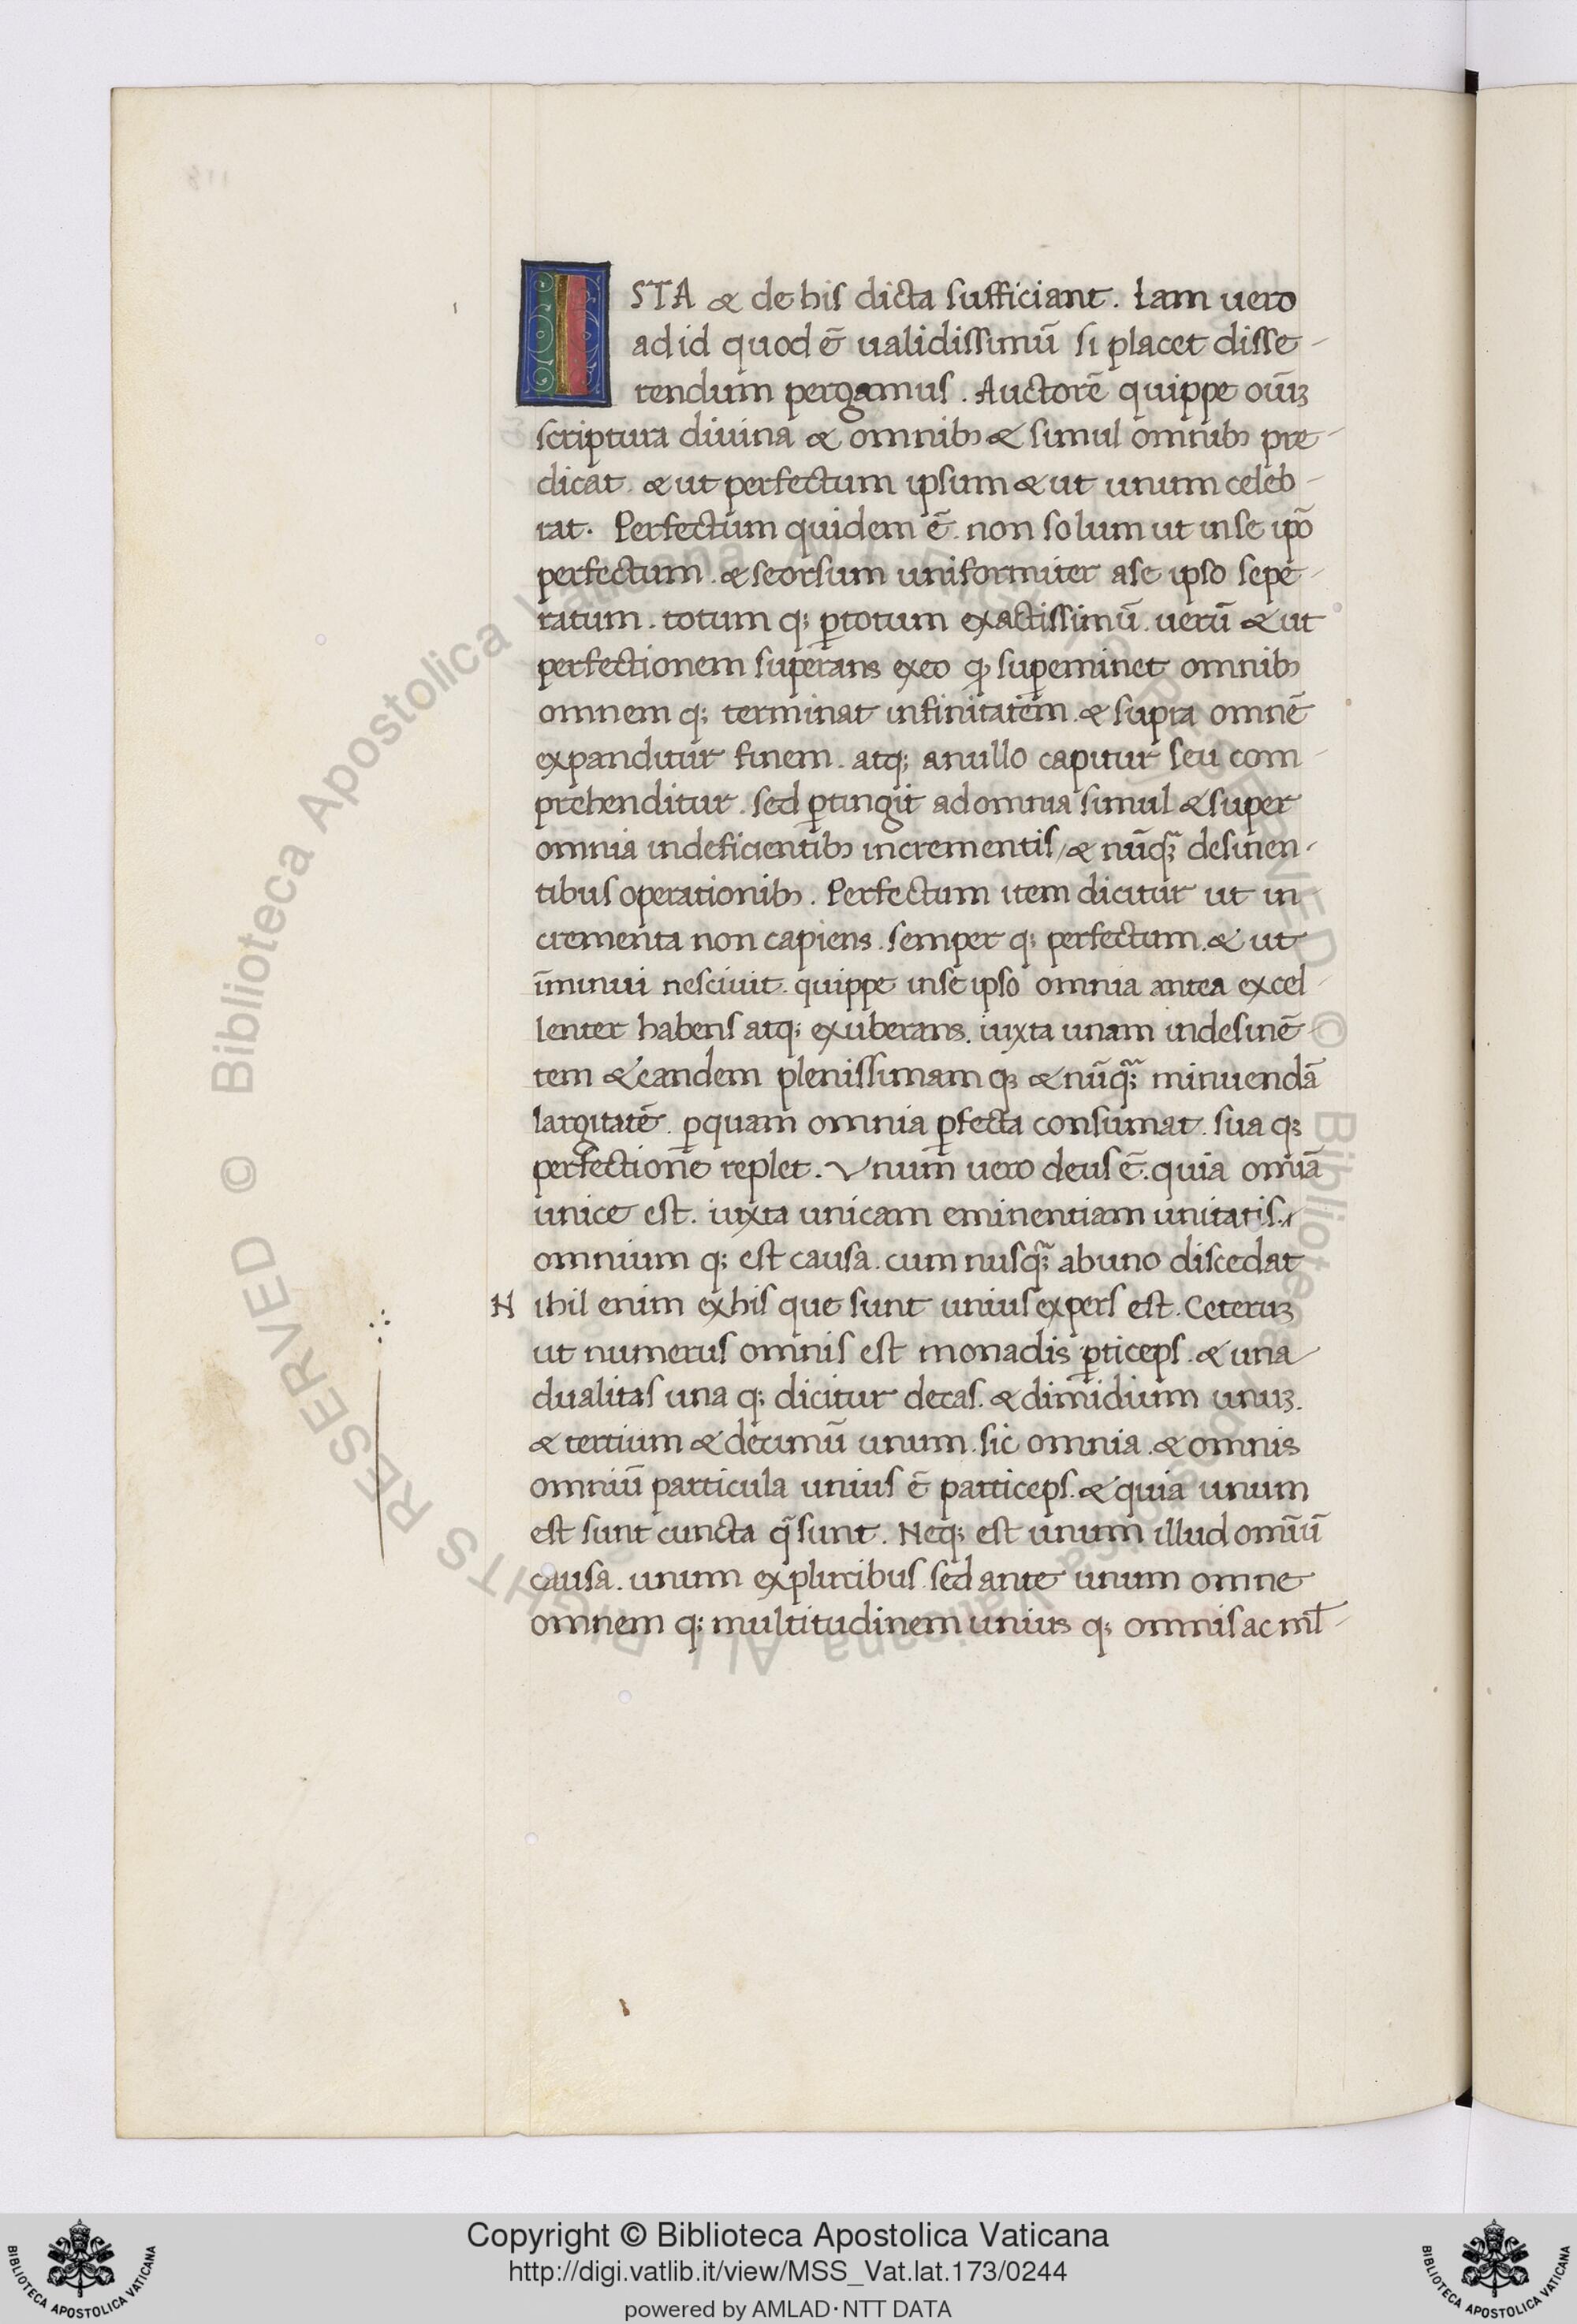 ISTA & de his dicta sufficiant. Iam uero
ad id quod ē ualidissimū si placet disse-
rendum pergamus. Auctorē quippe oīuꝫ
scriptura diuina & omnibꝰ & simul omnibꝰ pre-
dicat. & ut perfectum ipsum & ut unum celeb-
rat. Perfectum quidem ē. non solum ut in se ip̄o
perfectum. & seorsum uniformiter a se ipso sepe-
ratum. totum qꝫ ꝑ totum exactissimū. uerū & ut
perfectionem superans ex eo ꝙ suꝑeminet omnibꝰ
omnem qꝫ terminat infinitatem. & supra omnē
expanditur finem. atqꝫ a nullo capitur seu com-
prehenditur. sed ꝑtingit ad omnia simul & super
omnia indeficientibꝰ incrementis / & nūqꝫ desinen-
tibus operationibꝰ. Perfectum item dicitur ut in
crementa non capiens. semper qꝫ perfectum. & ut
īminui nesciuit. quippe in se ipso omnia antea excel-
lenter habens atqꝫ exuberans. iuxta unam indesinē-
tem & eandem plenissimam qꝫ & nūqꝫ minuendā
largitatē. ꝑ quam omnia ꝑfecta consumat. sua qꝫ
perfectione replet. Vnum uero deus ē. quia omīa
unice est. iuxta unicam eminentiam unitatis.
omnium qꝫ est causa. cum nusqꝫ ab uno discedat
Nihil enim ex his que sunt unius expers est. Ceteruꝫ
ut numerus omnis est monadis ꝑticeps. & una
dualitas una qꝫ dicitur decas. & dimidium unuꝫ.
& tertium & decimū unum. sic omnia. & omnis
omniū particula unius ē particeps. & quia unum
est sunt cuncta q̄ sunt. Neqꝫ est unum illud omīū
causa. unum ex pluribus. sed ante unum omne
omnem qꝫ multitudinem unius qꝫ omnis ac ml̄-
© Biblioteca Apostolica Vaticana ALL RIGHTS RESERVED © Biblioteca Apostolica Vaticana ALL RIGHTS RESERVED
Copyright © Biblioteca Apostolica Vaticana
http://digi.vatlib.it/view/MSS_Vat.lat.173/0244
powered by AMLAD·NTT DATA
BIBLIOTECA APOSTOLICA VATICANA
BIBLIOTECA APOSTOLICA VATICANA